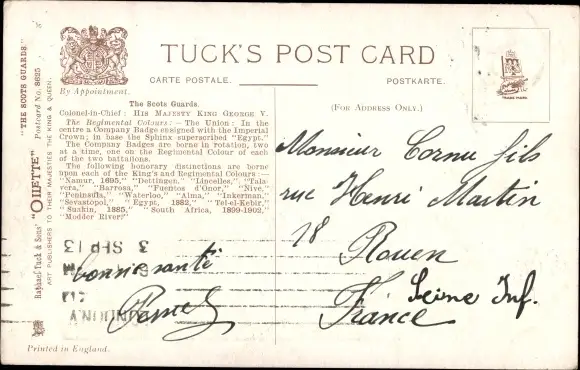 TUCK'S POST CARD
By Appointment.
CARTE POSTALE.
POSTKARTE.
The Scots Guards.
Colonel-in-Chief: HIS MAJESTY KING GEORGE V.
The Regimental Colours: — The Union: In the
centre a Company Badge ensigned with the Imperial
Crown; in base the Sphinx superscribed "Egypt."
The Company Badges are borne in rotation, two
at a time, one on the Regimental Colour of each
of the two battalions.
The following honorary distinctions are borne
upon each of the King's and Regimental Colours:—
"Namur, 1695," "Dettingen," "Lincelles," "Tala-
vera," "Barrosa," "Fuentos d'Onor," "Nive,"
"Peninsula," "Waterloo," "Alma," "Inkerman,"
"Sevastopol," "Egypt, 1882," "Tel-el-Kebir,"
"Suakin, 1885," "South Africa, 1899-1902,"
"Modder River."
(FOR ADDRESS ONLY.)
TRADE MARK.
"THE SCOTS GUARDS."
Postcard No. 8625
Raphael Tuck & Sons' "OILETTE"
ART PUBLISHERS TO THEIR MAJESTIES THE KING & QUEEN.
3 SEP 13
bonne santé
Monsieur Cornu fils
rue Henri Martin
18
Rouen
Seine Inf.
France
Printed in England.